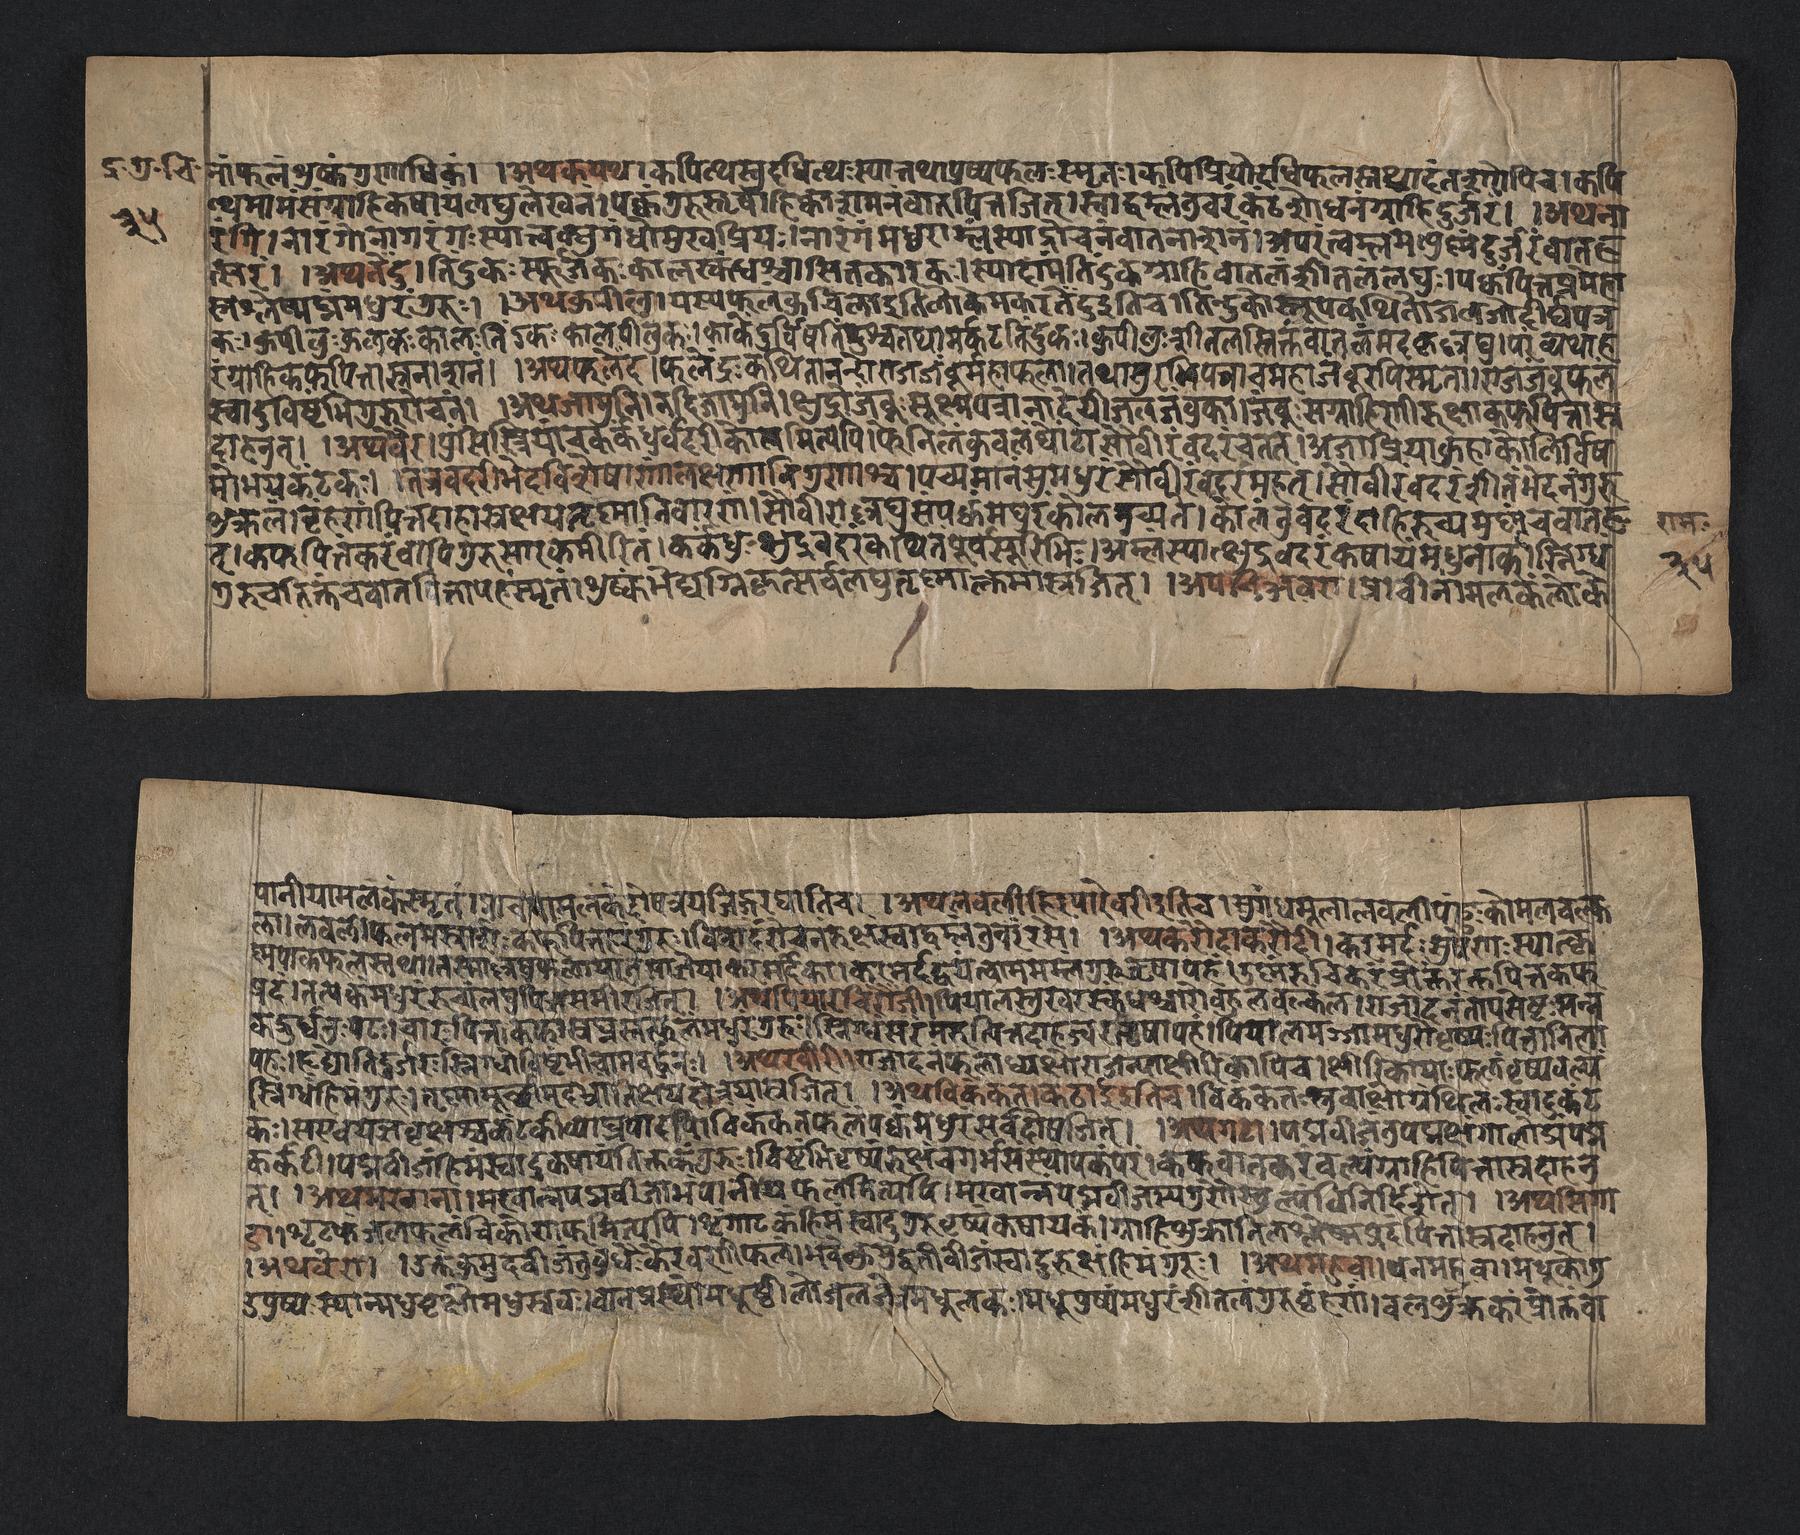 द्र॰गु॰चि॰
३५
नांफलंशुष्कंगुणाधिकं। ।अथकयथ।कपित्थस्तुदधित्थःस्यात्तथापुष्पफलःस्मृतः।कपिप्रियोदधिफलस्तथादंतशठोपिच।कपि
त्थमामंसंग्राहिकषायंलघुलेखनं।पक्वंगुरुतृषाहिक्काशमनंवातपित्तजित्।स्याद्वम्लंतुवरंकंठशोधनंग्राहिदुर्जरं। ।अथना
रंगी।नारंगोनागरंगःस्यात्त्वक्सुगंधोमुखप्रियः।नारंगंमधुराम्लंस्याद्रोचनंवातनाशनं।अपरंत्वम्लमत्युष्णंदुर्जरंवातहृ
त्सरं। ।अथतेंदु।तिंदुकःस्फूर्जकःकालस्कंधश्चासितकारकः।स्यादामंतिंदुकंग्राहिवातलंशीतलंलघुः।पक्वंपित्तप्रमेहा
स्रश्लेष्मघ्नंमधुरंगुरुः। ।अथकुपीलु।यस्यफलंकुचिलाइतिलोकेमकरतेंदुइतिच।तिन्दुकोयस्तुकथितोजलजोदीर्घपत्र
कः।कुपीलुःकुलकःकालःतिंदुकःकालपीलुकः।काकेंदुर्विषतिंदुश्चतथामर्कटतिंदुकः।कुपीलुःशीतलस्तिक्तंवातलंमदकृल्लघु।परंव्यथाह
रंग्राहिकफपित्तास्रनाशनं। ।अथफलेंद्र।फलेंद्रःकथितानन्दीराजजंबूर्महाफला।तथासुरभिपत्राचमहाजंबूरपिस्मृता।राजजंबुफलं
स्वादुविष्टंभिगुरुरोचनं। ।अथजामुनि।नदिजामुनि।क्षुद्राजंबूःसूक्ष्मपत्रानादेयीजलजंबुका।जंबूःसंग्राहिणीरूक्षाकफपित्तास्र
दाहनुत्। ।अथवैर।पुंसिस्त्रियांचकर्कंधूर्वदरीकोलमित्यपि।फेनिलंकुवलंघोंटासौवीरंवदरंचतत्।अजाप्रियाकुहाकोलिर्विषा
मोभयकंटकः। ।तत्रवदरीभेदविशेषाणांलक्षणानिगुणाश्च।पच्यमानंसुमधुरंसौवीरंवदरंमहत्।सौवीरंवदरंशीतंभेदनंगुरु
शुक्रलं।बृंहणंपित्तदाहास्रक्षयतृष्णानिवारणं।सौवीराल्लघुसंपक्वंमधुरंकोलमुच्यते।कोलंतुवदरंग्राहिरुच्यमुष्णंचवातह
त्।कफपित्तकरंचापिगुरुसारकमीरितं।कर्कंधुःक्षुद्रवदरंकथितंपूर्वसूरिभिः।अम्लंस्यात्क्षुद्रवदरंकषायंमधुनाक्।स्निग्धं
गुरुचतिक्तंचवातपित्तापहंस्मृतं।शुष्कंभेद्यग्निकृत्सर्वंलघुतृष्णाक्लमास्रजित्। ।अथपनिअवरा।प्राचीनामलकंलोके
रामः
३५
पानीयामलकंस्मृतं।प्राचीनामलकंदोषत्रयजिज्ज्वरघातिच। ।अथलवलीहरिफारेवरीइतिच।सुगंधमूलालवलीपांडुःकोमलवल्क
ला।लवलीफलमश्मार्शःकफपित्तहरंगुरु।विशदंरोचनंरूक्षंस्वाद्वम्लंतुवरंरसे। ।अथकरोंदाकरोंदी।करमर्दःसुषेणःस्यात्कृ
ष्णपाकफलस्तथा।तस्माल्लघुफलायातुसाज्ञेयाकरमर्दिका।करमर्दद्वयंत्वाममम्लंगुरुतृषापहं।उष्णंरुचिकरंप्रोक्तंरक्तपित्तकफ
प्रदं।तत्पक्वंमधुरंरुच्यंलघुपित्तसमीरजित्। ।अथपियारचिरोंजी।पियालस्तुखरस्कंधश्चारोबहुलवल्कलः।राजादनंतापसेष्टःसन्न
कद्रुर्धनुःपटः।चारःपित्तकफास्रघ्नस्तत्फलंमधुरंगुरु।स्निग्धंसरंमरुत्पित्तदाहज्वरतृषापहं।पियालमज्जामधुरोवृष्यःपित्तानिला
पहः।हृद्योतिदुर्जरःस्निग्धोविष्टंभीचामवर्द्धनः। ।अथखीरी।राजादनफलाध्यक्षोराजन्याक्षीरिकापिच।क्षीरिकायाःफलंवृष्यंबल्यं
स्निग्धंहिमंगुरुः।तृष्णामूर्च्छामदभ्रांतिक्षयदोषत्रयास्रजित्। ।अथविकंकत।कठाईइतिच।विकंकतःस्रुवावृक्षोग्रंथिलःस्वादुकंट
कः।सएवयज्ञवृक्षश्चकंटकीव्याघ्रपादपि।विकंकतफलंपक्वंमधुरंसर्वदोषजित्। ।अथगटा।पद्मबीजंतुपद्माक्षंगालोड्यंपद्म
कर्कटी।पद्मबीजंहिमंस्वादुकषायंतिक्तकंगुरुः।विष्टंभिवृष्यंरूक्षंचगर्भसंस्थापकंपरं।कफवातकरंबल्यंग्राहिपित्तास्रदाहनु
त्। ।अथमखाना।मखान्नंपद्मबीजाभंपानीयफलमित्यपि।मखान्नंपद्मबीजस्यगुणैस्तुल्यंविनिर्दिशेत्। ।अथसिंगा
डा।शृंगाटकंजलफलंत्रिकोणफलमित्यपि।शृंगाटकंहिमंस्वादुगुरुवृष्यंकषायकं।ग्राहिशुक्रानिलश्लेष्मप्रदंपित्तास्रदाहनुत्।
।अथवेरा। ।उक्तंकुमुदबीजंतुबुधैःकैरवणीफलं।भवेत्कुमुद्वतीबीजंस्वादुरूक्षंहिमंगुरु। ।अथमहुवा।वनमहुवा।मधूकोगु
डपुष्पःस्यान्मधुवृक्षोमधुस्रवः।वानप्रस्थोमधुष्ठीलोजलजेत्रमधूलकः।मधूपुष्पंमधुरंशीतलंगुरुबृंहणं।बलशुक्रकरंप्रोक्तंवा